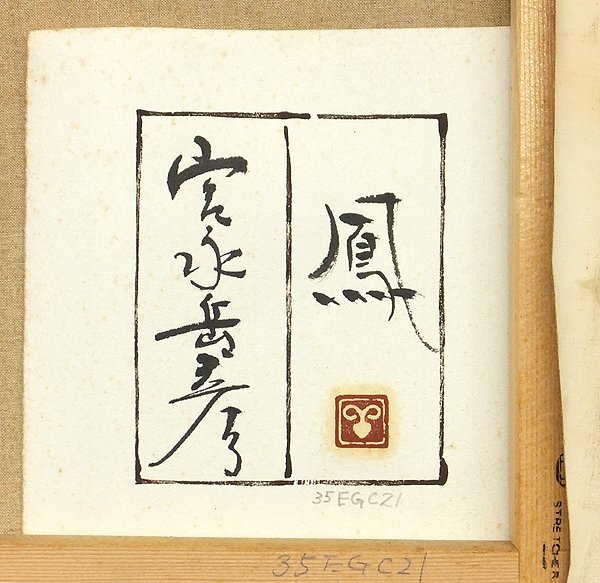 鳳
宮永岳彦
35EGC21
35EGC21
STRETCHER